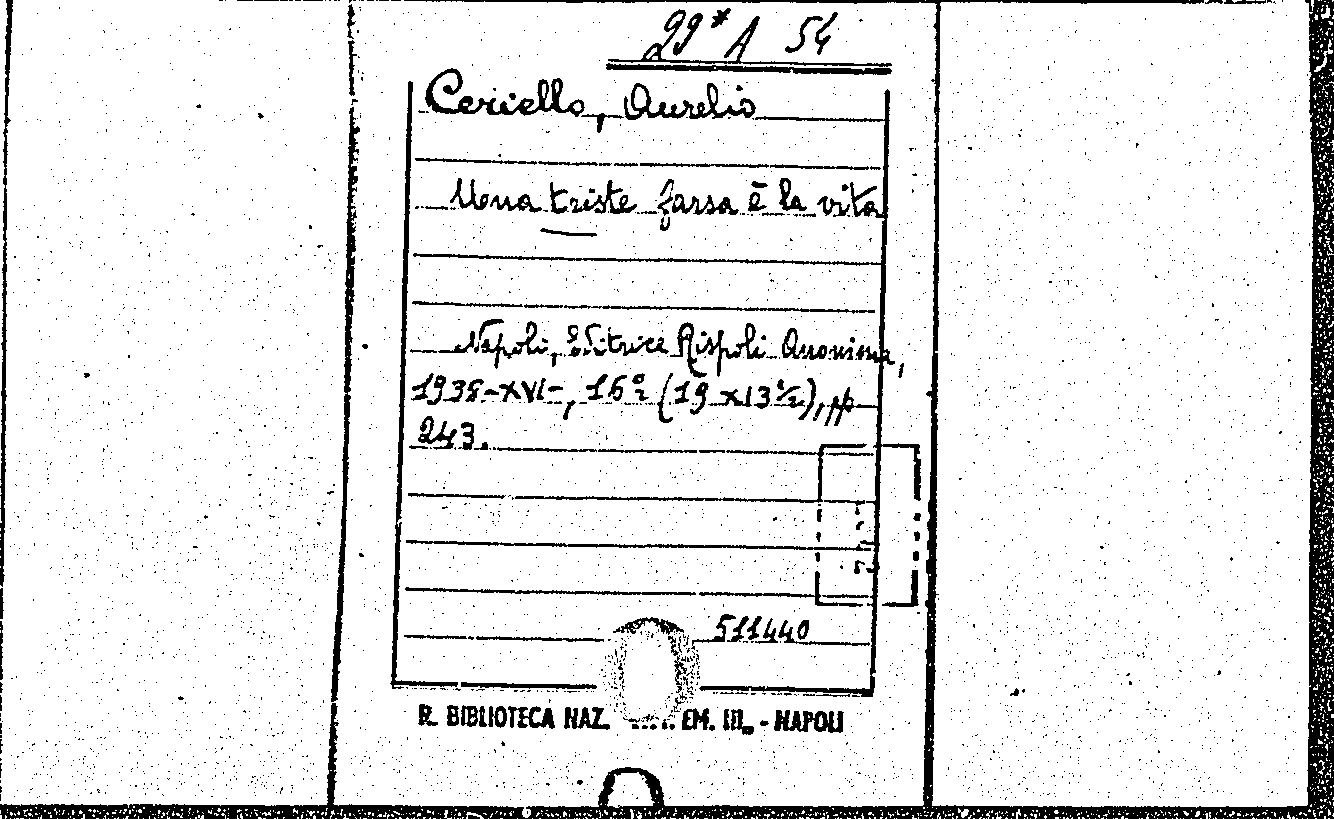 29* A 54
Cerciello, Aurelio
Una triste farsa è la vita
Napoli, Editrice Rispoli Anonima,
1938-XVI-, 16° (19 x 13 ½), pp
243.
511440
R. BIBLIOTECA NAZ. EM. III„ - NAPOLI